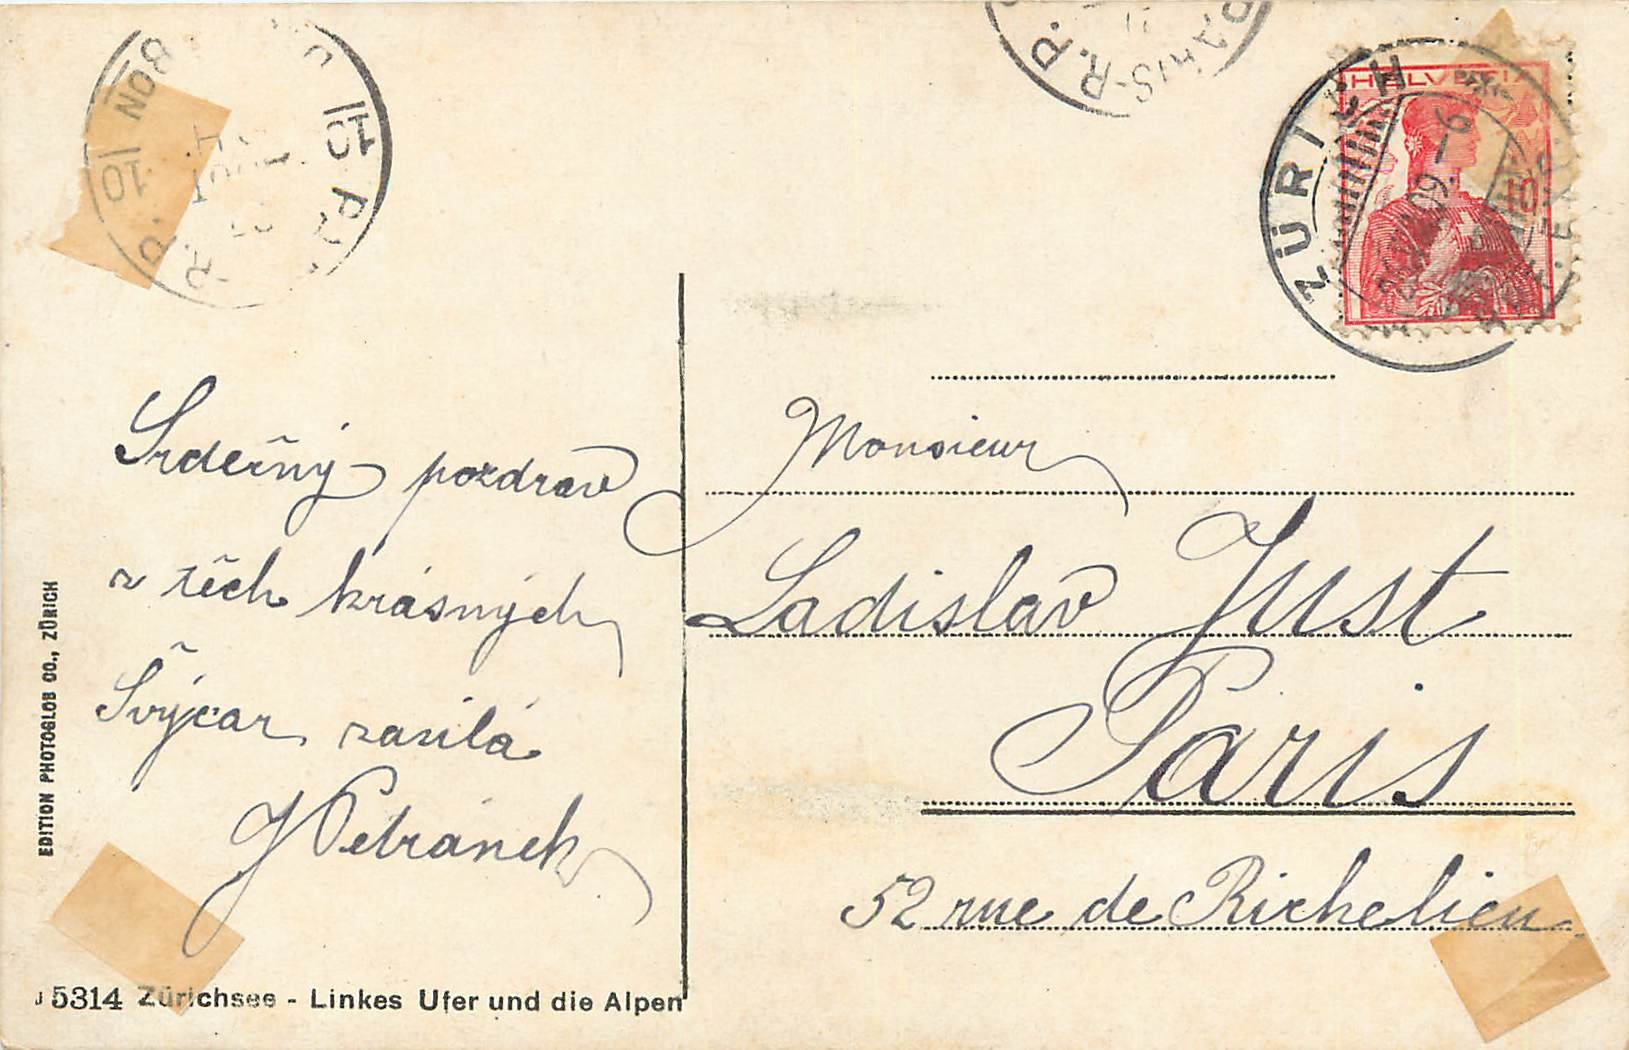 HELVETIA
10
ZÜRICH
PARIS-R.P.
15 R
Srdečný pozdrav
z těch krásných
Švýcar zasílá
J Petránek
Monsieur
Ladislav Just
Paris
52 rue de Richelieu
EDITION PHOTOGLOB CO., ZÜRICH
J 5314 Zürichsee - Linkes Ufer und die Alpen